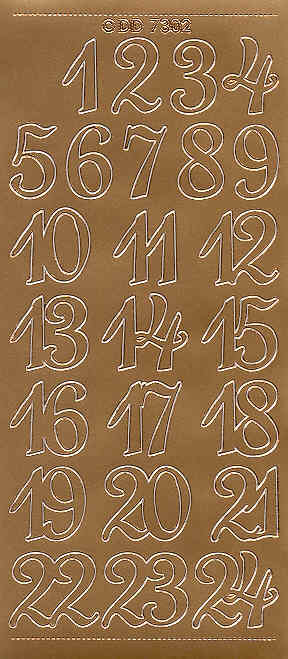 CDD 7302
1 2 3 4
5 6 7 8 9
10 11 12
13 14 15
16 17 18
19 20 21
22 23 24